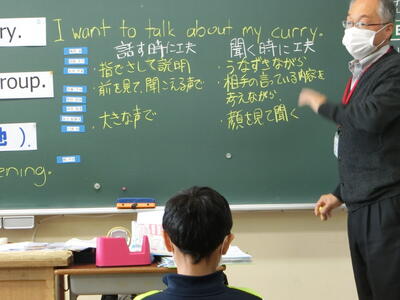 ry.
I want to talk about my curry.
話す時に工夫
・指でさして説明
・前を見て、聞こえる声で
・大きな声で
聞く時に工夫
・うなずきながら
・相手の言っている内容を
考えながら
・顔を見て聞く
roup.
地).
ening.